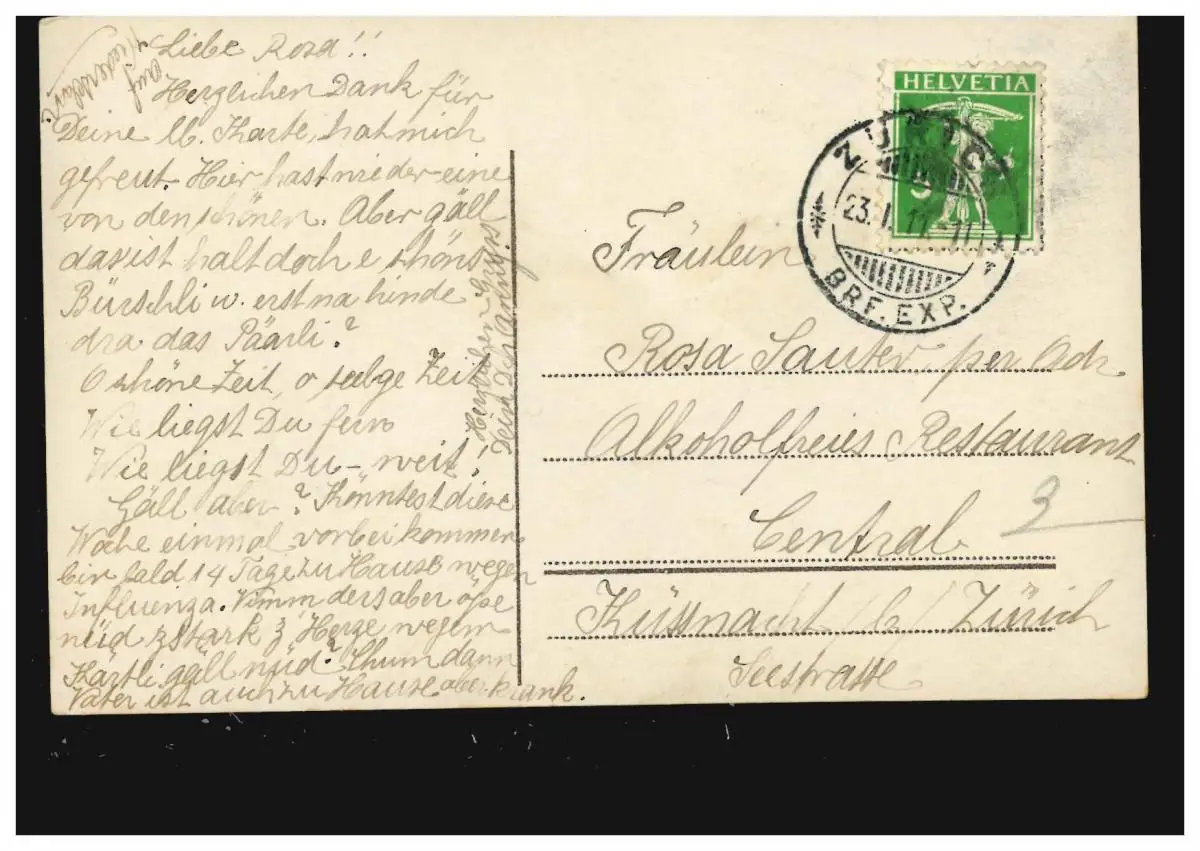 Liebe Rosa!!
Herzlichen Dank für
Deine lb. Karte, hat mich
gefreut. Hier hast wieder eine
von den schönen. Aber gäll
das ist halt doch e schöns
Bürschli u. erst na hinde
dra das Päärli?
O schöne Zeit, o seelge Zeit
Wie liegst Du fern
Wie liegst Du - weit!
Gäll aber? Könntest diese
Woche einmal vorbei kommen
bin bald 14 Tage zu Hause wegen
Influenza. Nimm ders aber öpe
nüd z stark z' Herze wegem
Kärtli gäll nüd? Chum dann
Vater ist auch zu Hause aber krank.
Herzlichen Gruss
Dein
auf
Wiederschau
HELVETIA
5
ZÜRICH
23.I.11.-11
BRF. EXP.
Fräulein
Rosa Sauter per Adr
Alkoholfreies Restaurant
Central
3
Küssnacht /b/ Zürich
Seestrasse